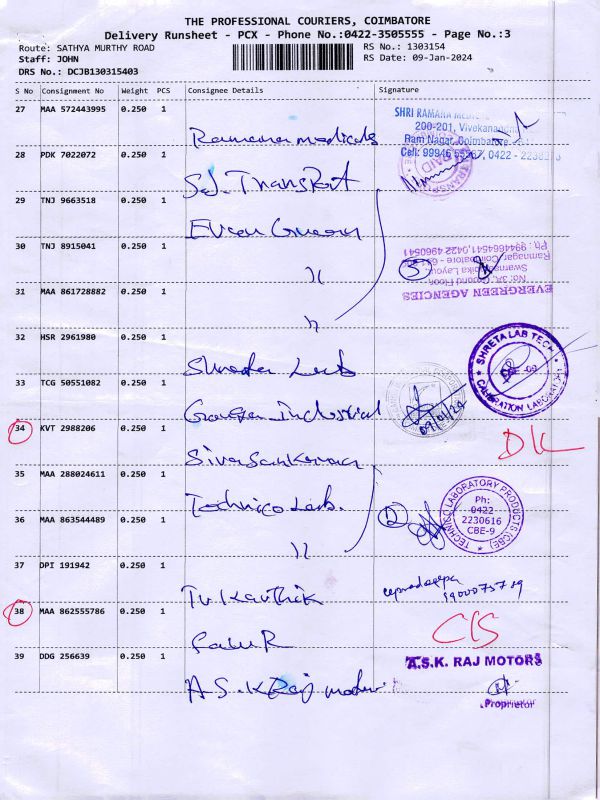 THE PROFESSIONAL COURIERS, COIMBATORE
Delivery Runsheet - PCX - Phone No.:0422-3505555 - Page No.:3
Route: SATHYA MURTHY ROAD
RS No.: 1303154
Staff: JOHN
RS Date: 09-Jan-2024
DRS No.: DCJB130315403
S No Consignment No Weight PCS Consignee Details Signature
27 MAA 572443995 0.250 1
Ramana medicals
SHRI RAMANA
200-201, Vivekanand
Ram Nagar, Coimbatore
28 PDK 7022072 0.250 1
S.J. Transport
29 TNJ 9663518 0.250 1
Ever Green
30 TNJ 8915041 0.250 1
"
3
EVERGREEN AGENCIES
No: 3A, Ground Floor,
Swarnambika Layout,
Ramnagar, Coimbatore
Ph : 9944664541, 0422 4960541
31 MAA 861728882 0.250 1
"
32 HSR 2961980 0.250 1
Shreeta Lab
SHRETA LAB TECH
CALIBRATION LABORATORY
33 TCG 50551082 0.250 1
Industrial
09/01/24
34 KVT 2988206 0.250 1
Sivasankaran
DL
35 MAA 288024611 0.250 1
Technico Lab.
TECHNICO LABORATORY PRODUCTS (CBE)
Ph:
0422
2230616
CBE-9
36 MAA 863544489 0.250 1
"
2
37 DPI 191942 0.250 1
T.V. Karthik
38 MAA 862555786 0.250 1
C/S
39 DDG 256639 0.250 1
A.S.K Raj motors
A.S.K. RAJ MOTORS
Proprietor